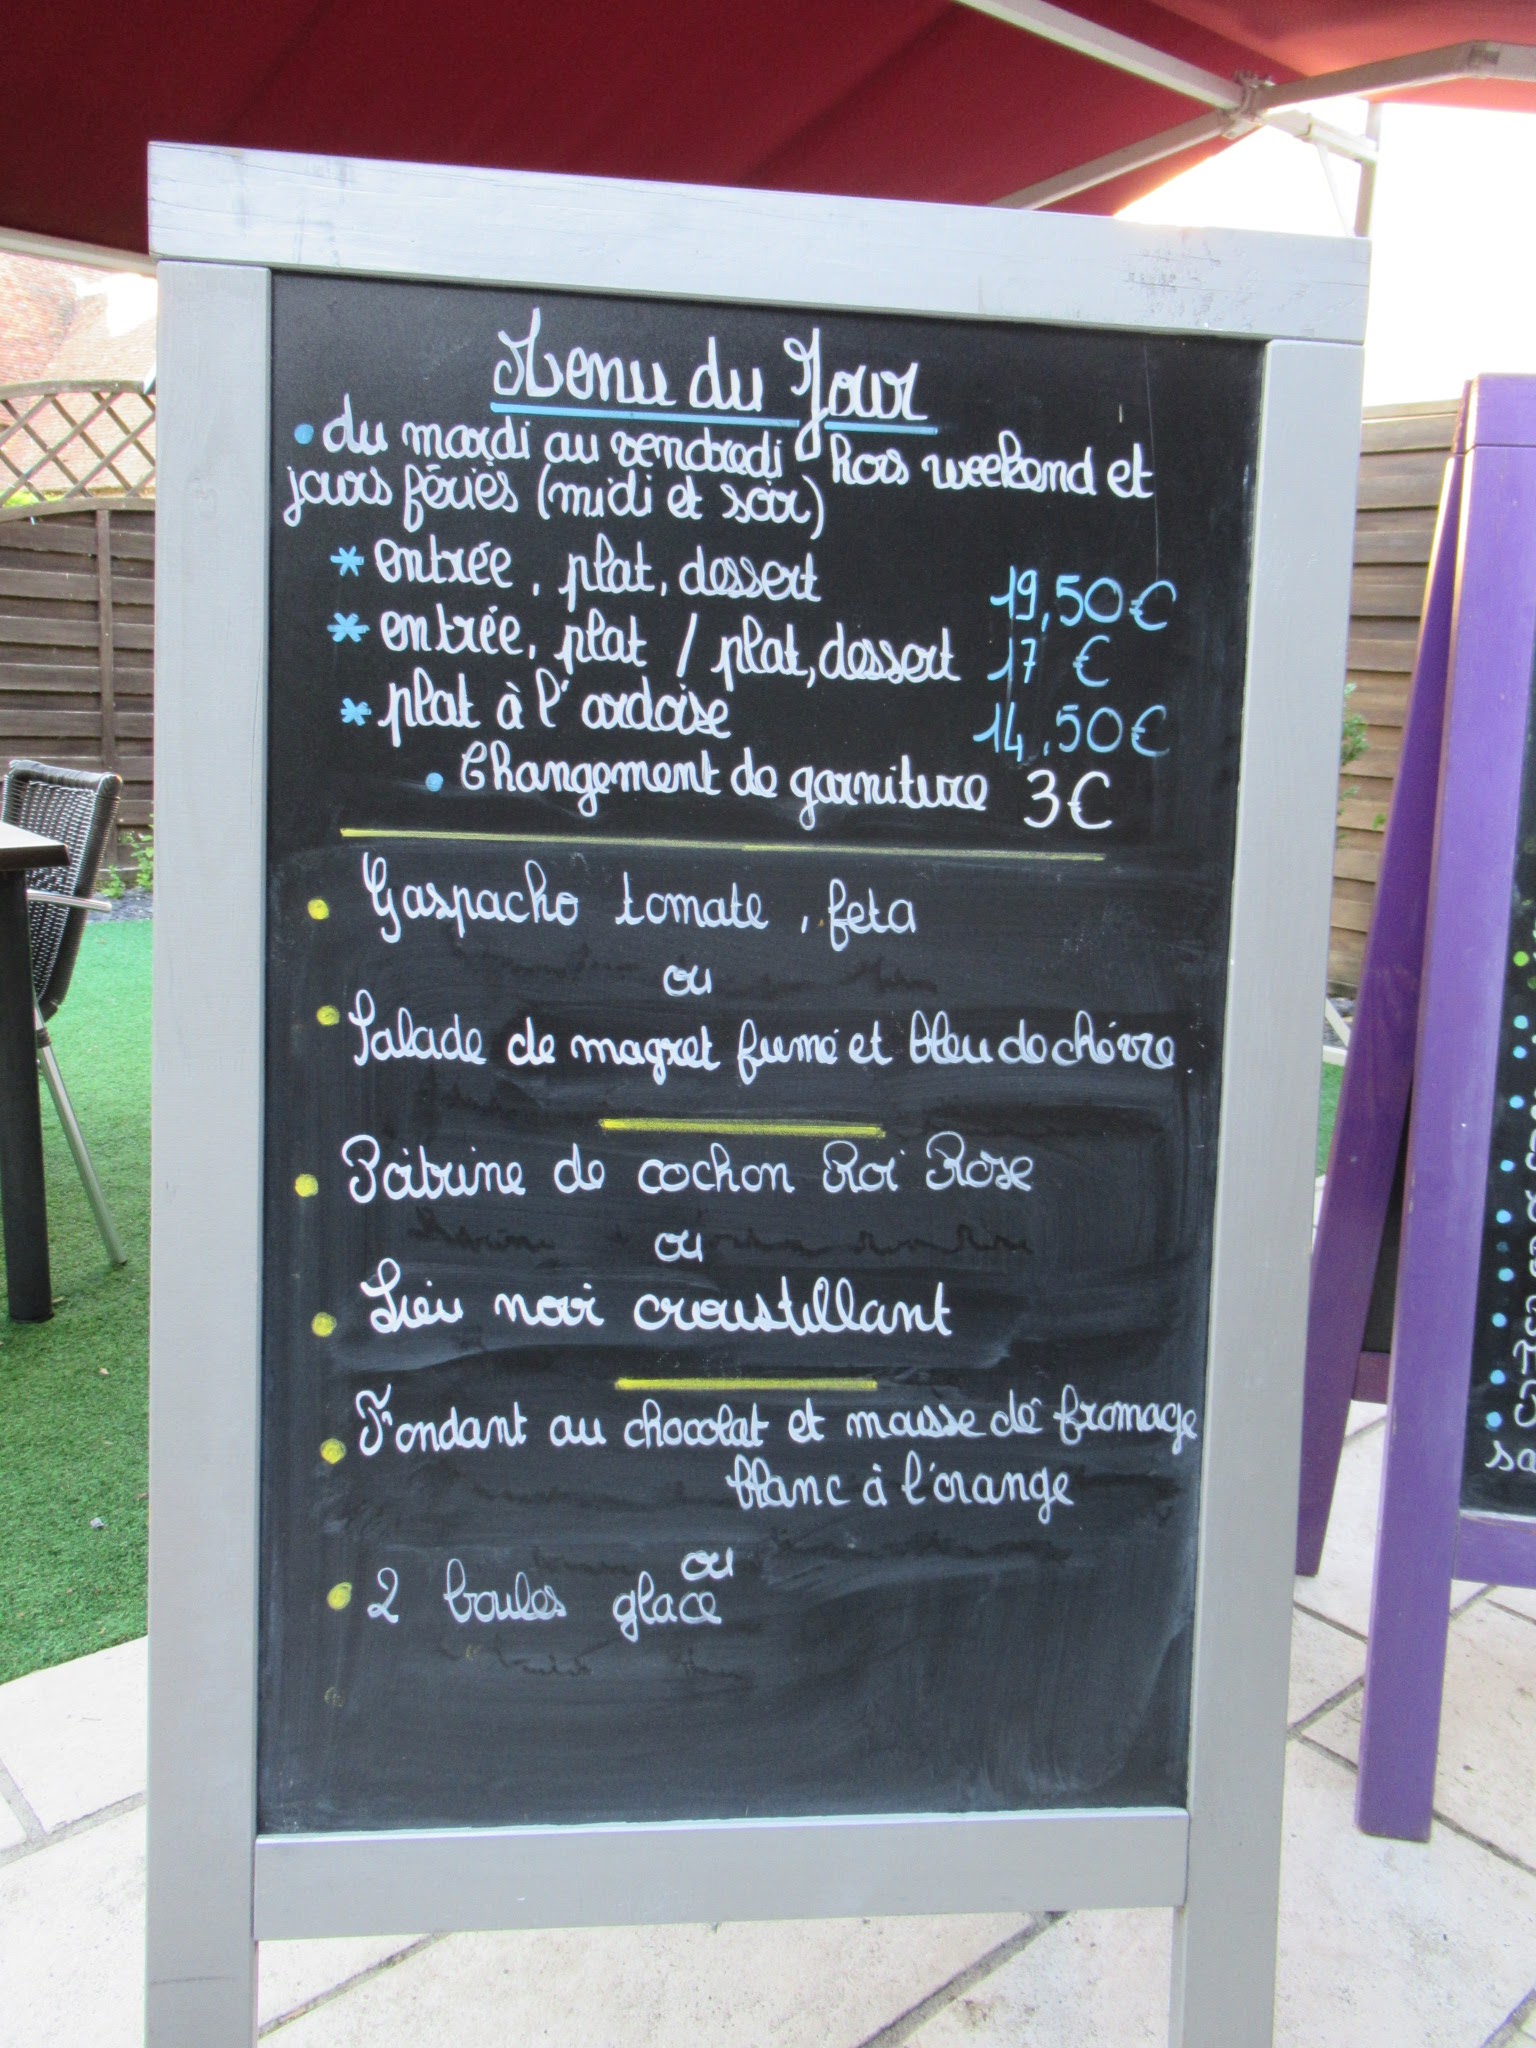 Menu du Jour
• du mardi au vendredi hors weekend et
jours fériés (midi et soir)
* entrée, plat, dessert 19,50€
* entrée, plat / plat, dessert 17 €
* plat à l'ardoise 14,50€
• Changement de garniture 3€
• Gaspacho tomate, feta
ou
• Salade de magret fumé et bleu de chèvre
• Poitrine de cochon Roi Rose
ou
• Lieu noir croustillant
• Fondant au chocolat et mousse de fromage
blanc à l'orange
ou
• 2 boules glace